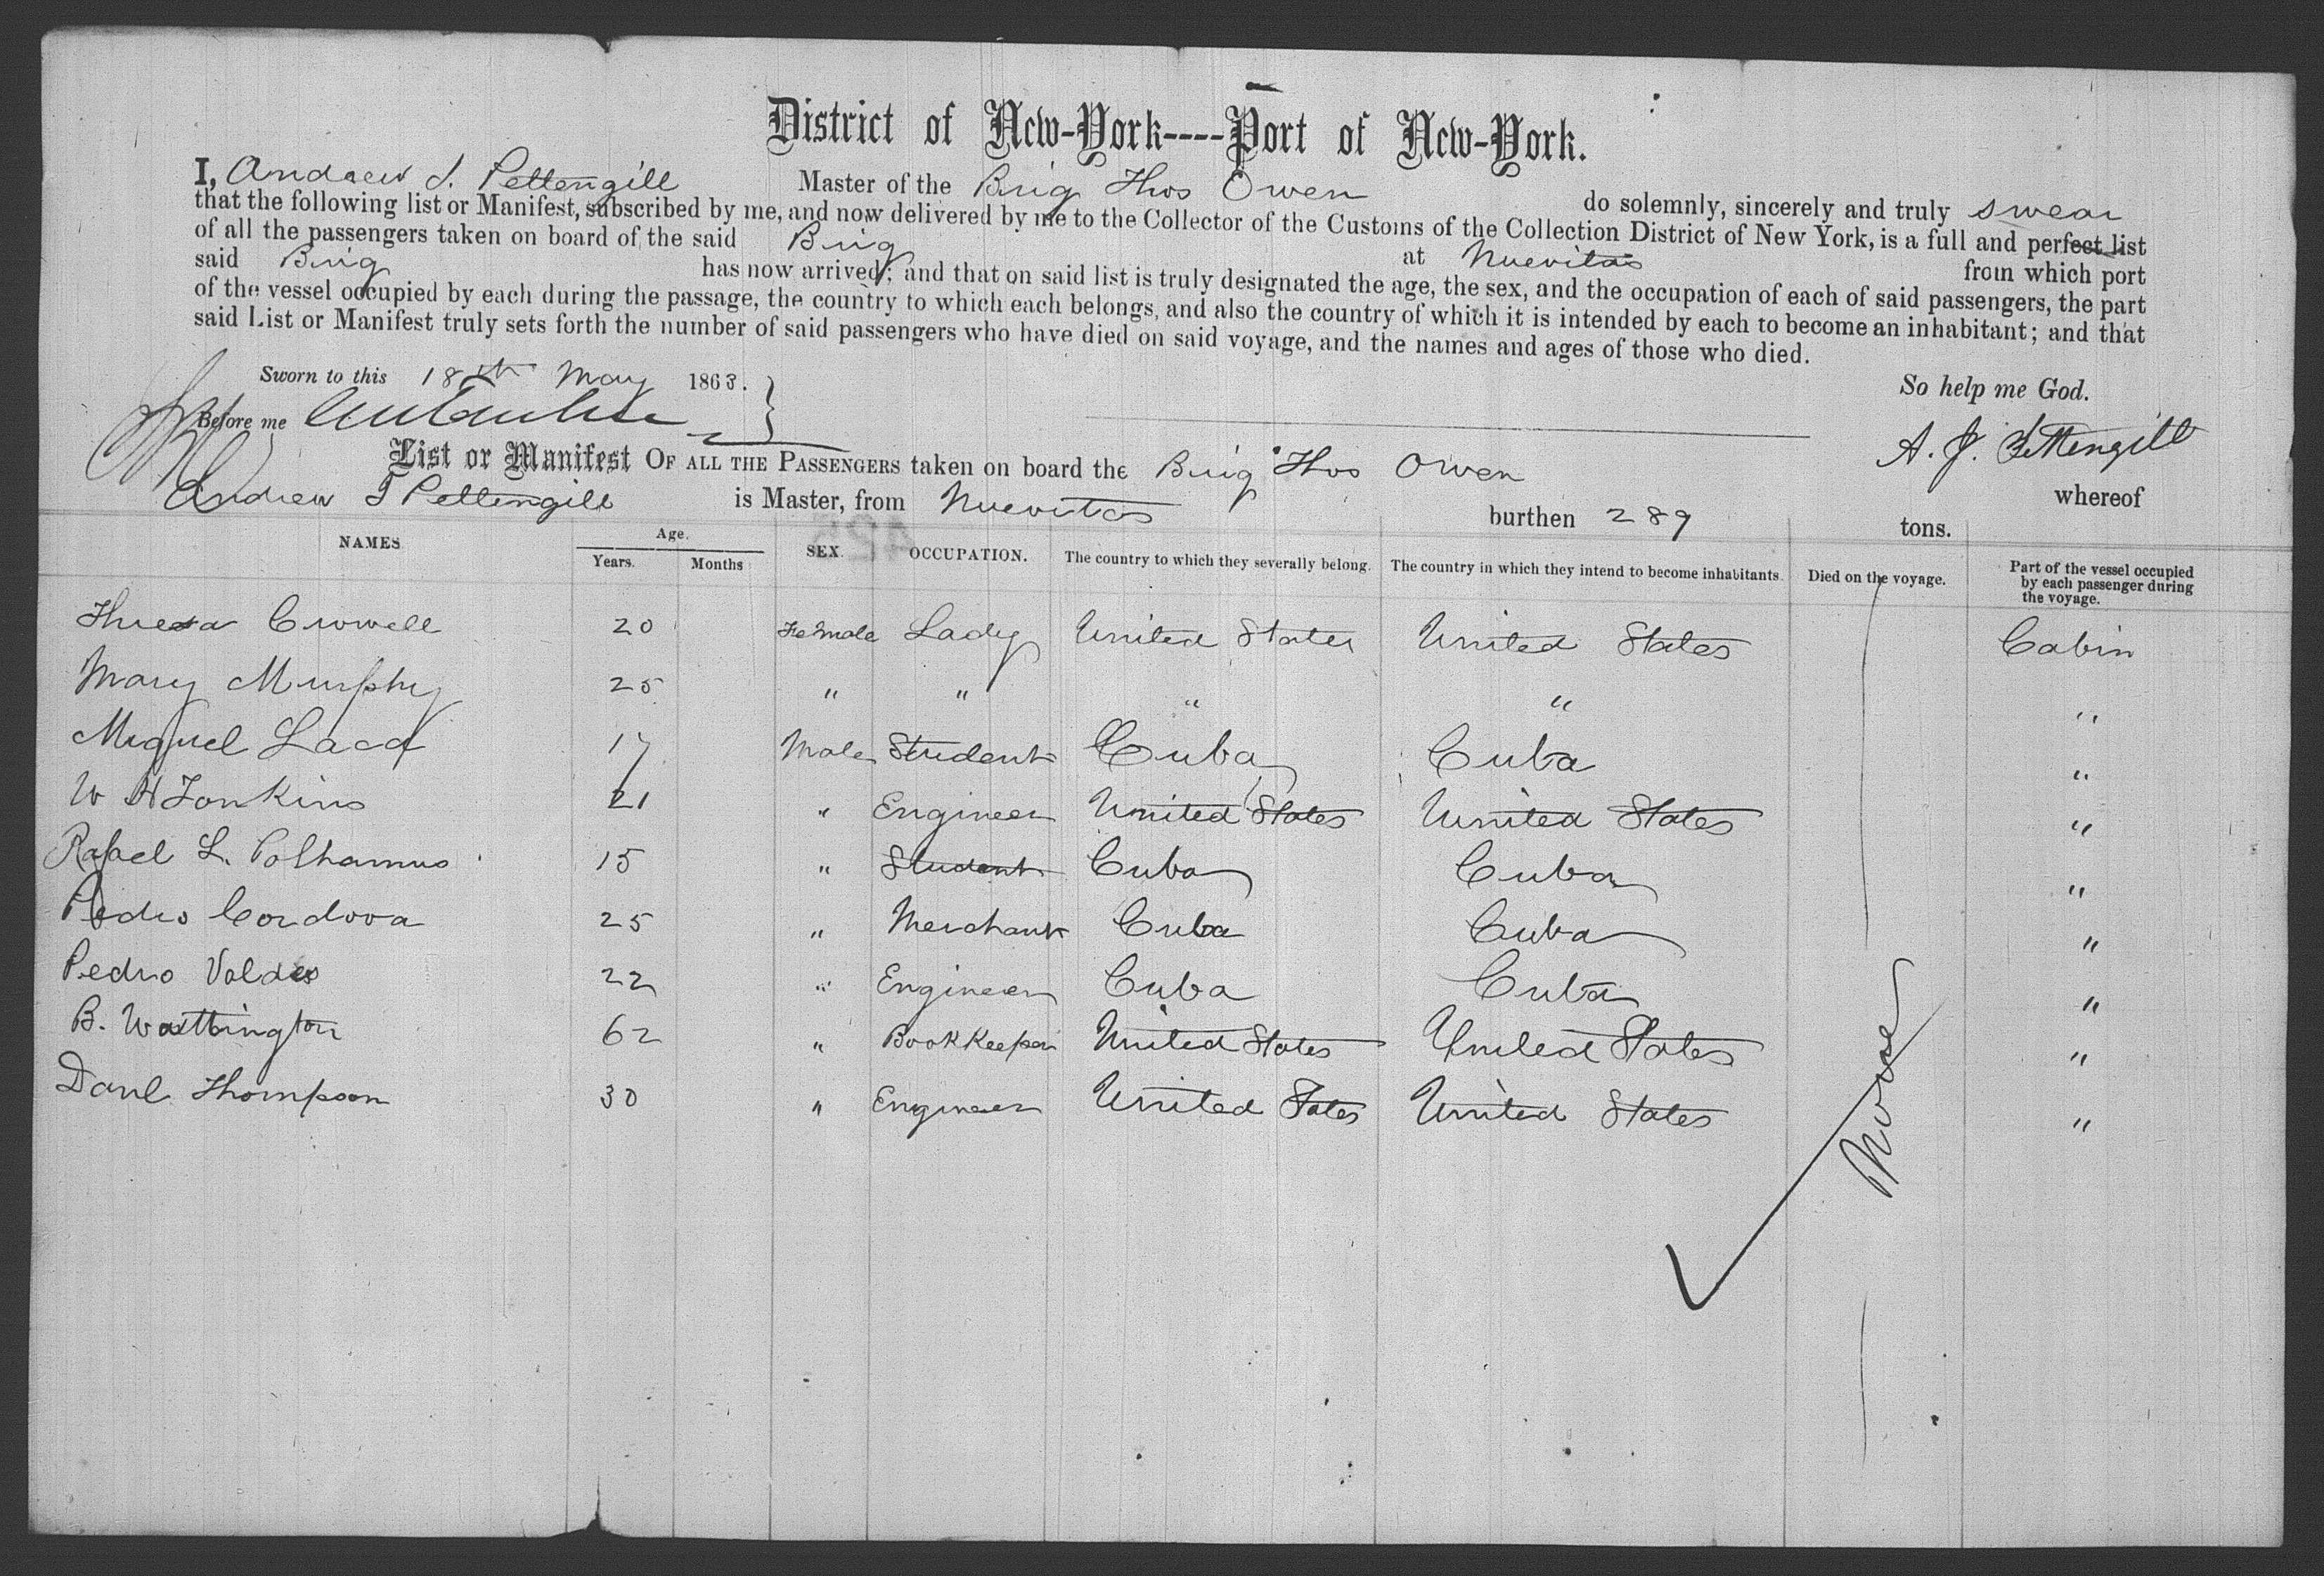 District of New-York----Port of New-York.
I, Andrew J. Pettengill Master of the Brig Thos Owen do solemnly, sincerely and truly swear
that the following list or Manifest, subscribed by me, and now delivered by me to the Collector of the Customs of the Collection District of New York, is a full and perfect list
of all the passengers taken on board of the said Brig at Nuevitas from which port
said Brig has now arrived; and that on said list is truly designated the age, the sex, and the occupation of each of said passengers, the part
of the vessel occupied by each during the passage, the country to which each belongs, and also the country of which it is intended by each to become an inhabitant; and that
said List or Manifest truly sets forth the number of said passengers who have died on said voyage, and the names and ages of those who died.
Sworn to this 18th May 1863. So help me God.
Before me A. J. Pettengill
List or Manifest OF ALL THE PASSENGERS taken on board the Brig Thos Owen whereof
Andrew J Pettengill is Master, from Nuevitas burthen 289 tons.
NAMES Age. Years. Months SEX. OCCUPATION. The country to which they severally belong. The country in which they intend to become inhabitants. Died on the voyage. Part of the vessel occupied by each passenger during the voyage.
Thresa Crowell 20 Female Lady United States United States Cabin
Mary Murphy 25 " " " " "
Miguel 17 Male Student Cuba Cuba "
W H Jonkins 21 " Engineer United States United States "
Rafael L. Polhamus 15 " Student Cuba Cuba "
Pedro Cordova 25 " Merchant Cuba Cuba "
Pedro Valdes 22 " Engineer Cuba Cuba "
B. Watthington 62 " BookKeeper United States United States "
Danl Thompson 30 " Engineer United States United States "